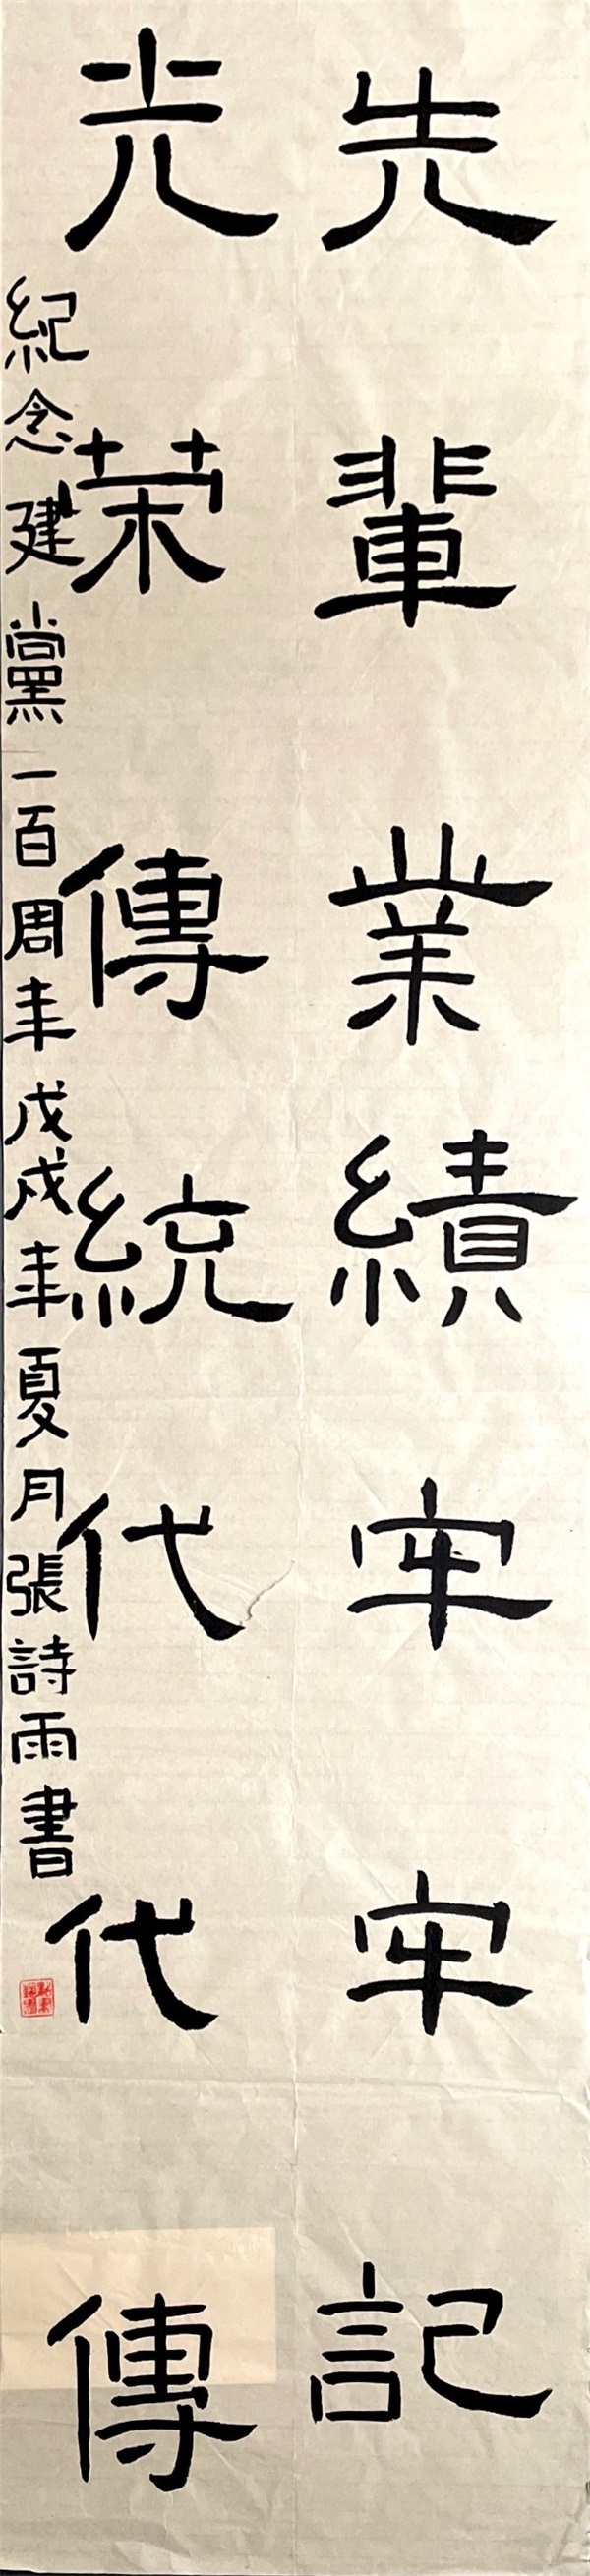 先輩業績牢牢記
光荣傳統代代傳
紀念建黨一百周年戊戌年夏月張詩雨書